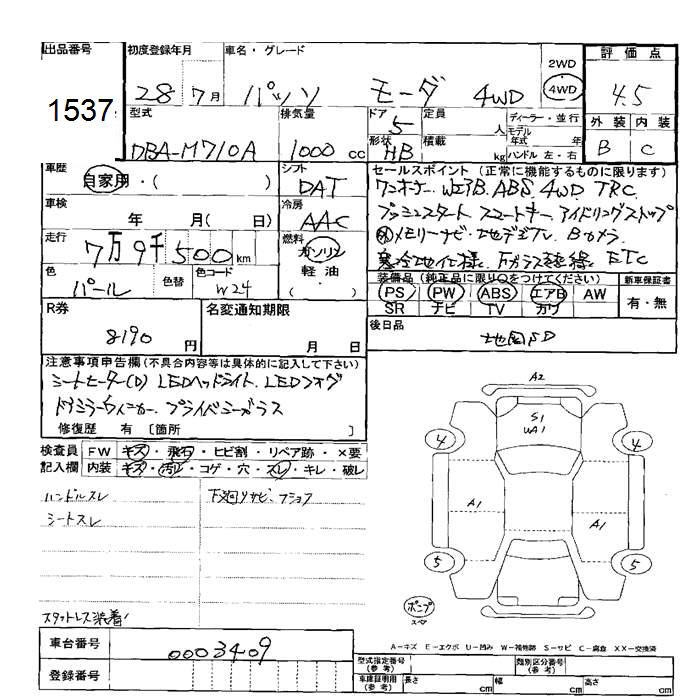 出品番号 1537
初度登録年月 28年 7月
車名・グレード パッソ モーダ 4WD
2WD
4WD
評価点 4.5
型式 DBA-M710A
排気量 1000 cc
ドア 5
形状 HB
定員
積載 kg
ディーラー・並行
モデル年式 年
ハンドル 左・右
外装 B
内装 C
車歴 自家用・( )
シフト DAT
冷房 AAC
車検 年 月( 日)
走行 7万9千500km
燃料 ガソリン
軽油・
( )
色 パール
色替
色コード W24
セールスポイント (正常に機能するものに限ります)
ワンオーナー. WエアB. ABS. 4WD TRC.
プッシュスタート スマートキー. アイドリングストップ
メモリーナビ・地デジTV. Bカメラ
寒冷地仕様. ETC
装備品 (純正品に限り○をつけてください)
PS PW ABS エアB AW
SR ナビ TV カワ
新車保証書 有・無
後日品 地図SD
R券 8190円
名変通知期限 月 日
注意事項申告欄(不具合内容等は具体的に記入して下さい)
シートヒーター(D) LEDヘッドライト. LEDフォグ
ドアミラーウィンカー. プライバシーガラス
修復歴 有 〔箇所 〕
検査員記入欄
FW キズ・飛石・ヒビ割・リペア跡・×要
内装 キズ・汚レ・コゲ・穴・スレ・キレ・破レ
ハンドルスレ
シートスレ
下廻りサビ、フショク
スタットレス装着!
A2
S1
WA1
4
4
A1
A1
5
5
ポンプ
スペア
A−キズ E−エクボ U−凹み W−補修跡 S−サビ C−腐食 XX−交換済
車台番号 0003409
登録番号
型式指定番号(参考)
類別区分番号(参考)
車庫証明用(参考) 長さ cm 幅 cm 高さ cm